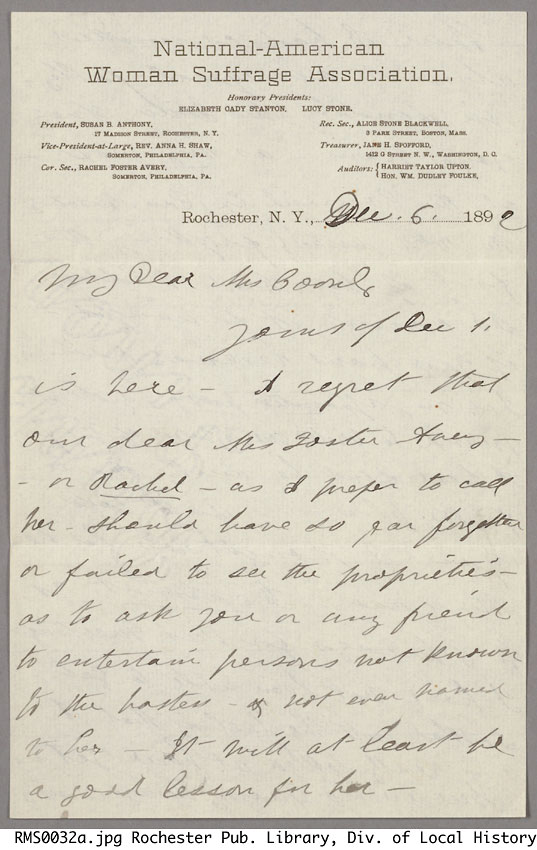 National-American
Woman Suffrage Association.
Honorary Presidents:
ELIZABETH CADY STANTON, LUCY STONE.
President, SUSAN B. ANTHONY,
17 MADISON STREET, ROCHESTER, N. Y.
Vice-President-at-Large, REV. ANNA H. SHAW,
SOMERTON, PHILADELPHIA, PA.
Cor. Sec., RACHEL FOSTER AVERY,
SOMERTON, PHILADELPHIA, PA.
Rec. Sec., ALICE STONE BLACKWELL,
3 PARK STREET, BOSTON, MASS.
Treasurer, JANE H. SPOFFORD,
1412 G STREET N. W., WASHINGTON, D. C.
Auditors: { HARRIET TAYLOR UPTON.
HON. WM. DUDLEY FOULKE,
Rochester, N. Y., Dec. 6. 1892
My Dear Mrs
Yours of Dec 1.
is here - I regret that
our dear Mrs Foster Avery -
- or Rachel - as I prefer to call
her - should have so far forgotten
or failed to see the proprieties -
as to ask you or any friend
to entertain persons not known
to the hostess - & not even named
to her - It will at least be
a good lesson for her -
RMS0032a.jpg Rochester Pub. Library, Div. of Local History